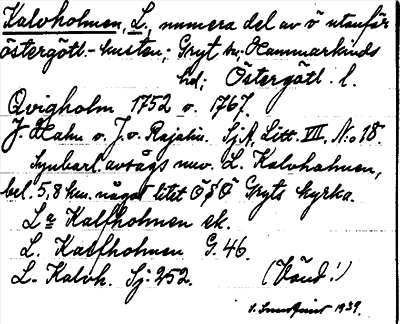 Kalvholmen, L., numera del av ö utanför
östergötl.-kusten; Gryt sn; Hammarkinds
hd; Östergötl. l.
Qvigholm 1752 v. 1767.
J. Hahn v. J. v. Rajalin. Sj.A. Litt. VII, No 18.
Synbarl. avsågs nuv. L. Kalvholmen,
bel. 5,8 km. något litet ÖSÖ Gryts kyrka.
La Kalfholmen ek.
L. Kalfholmen G. 46.
L. Kalvh. Sj: 252. (Vänd!)
S. Sundqvist 1939.